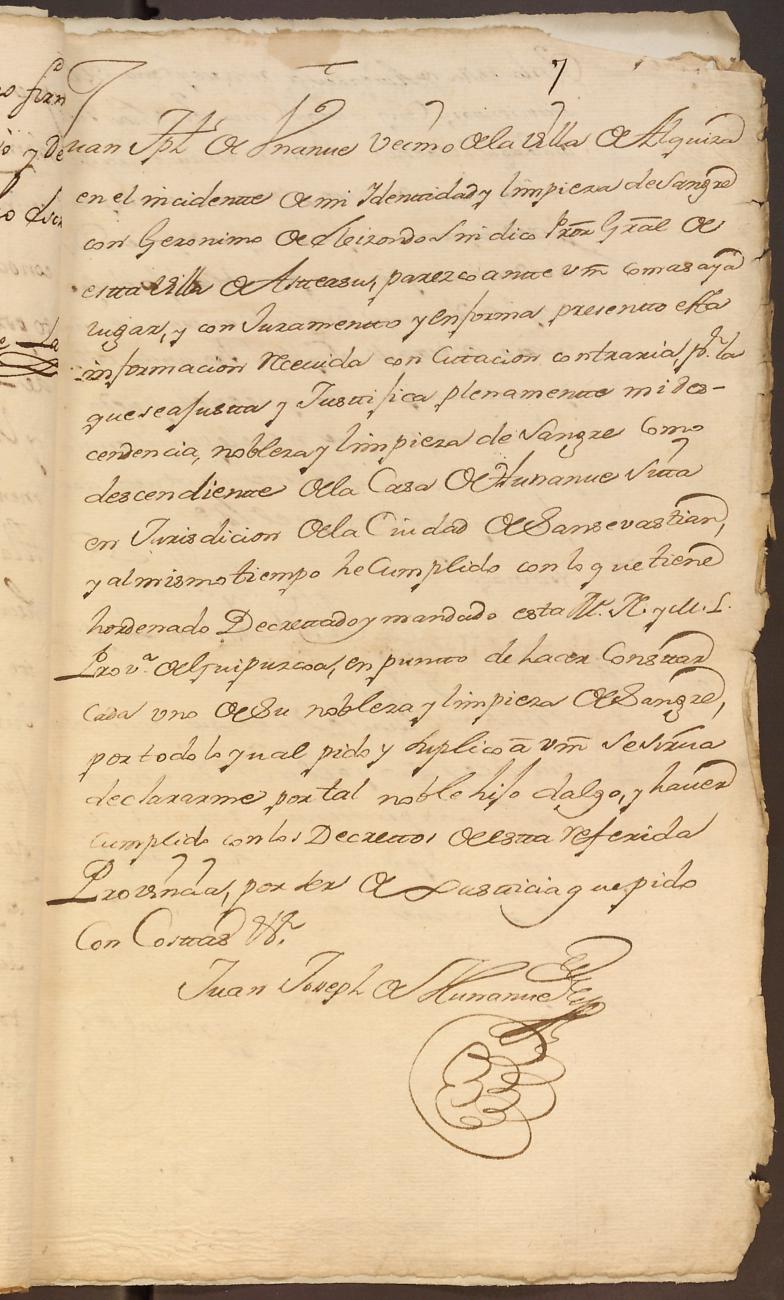 7
Juan Jph de Vnanue vecino de la Villa de Alquiza
en el incidente de mi Identidad y limpieza de Sangre
con Geronimo de Leizondo Sindico Pror Gral de
estta Villa de Astteasu, parezco antte vm como aya
lugar, y con Juramentto y en forma presentto estta
informacion receuida con Cittacion contraria, pr la
que se ajustta y Justtifica plenamentte mi des-
cendencia, nobleza y limpieza de Sangre Como
descendientte de la Casa de Hunanue Sitta
en Jurisdicion de la Ciudad de San sevastian,
y al mismo tiempo he Cumplido con lo que tiene
hordenado Decrettado y mandado esta M. N. y M. L.
Prova de Guipuzcoa, en puntto de hacer Consttar
Cada uno de Su nobleza y limpieza de Sangre,
por todo lo qual pido y suplico a vm Se sirua
declararme por tal noble hijo dalgo, y hauer
Cumplido con los Decrettos de estta referida
Provincia, por ser de Justticia que pido
Con Costtas &a.
Juan Joseph de Hunanue